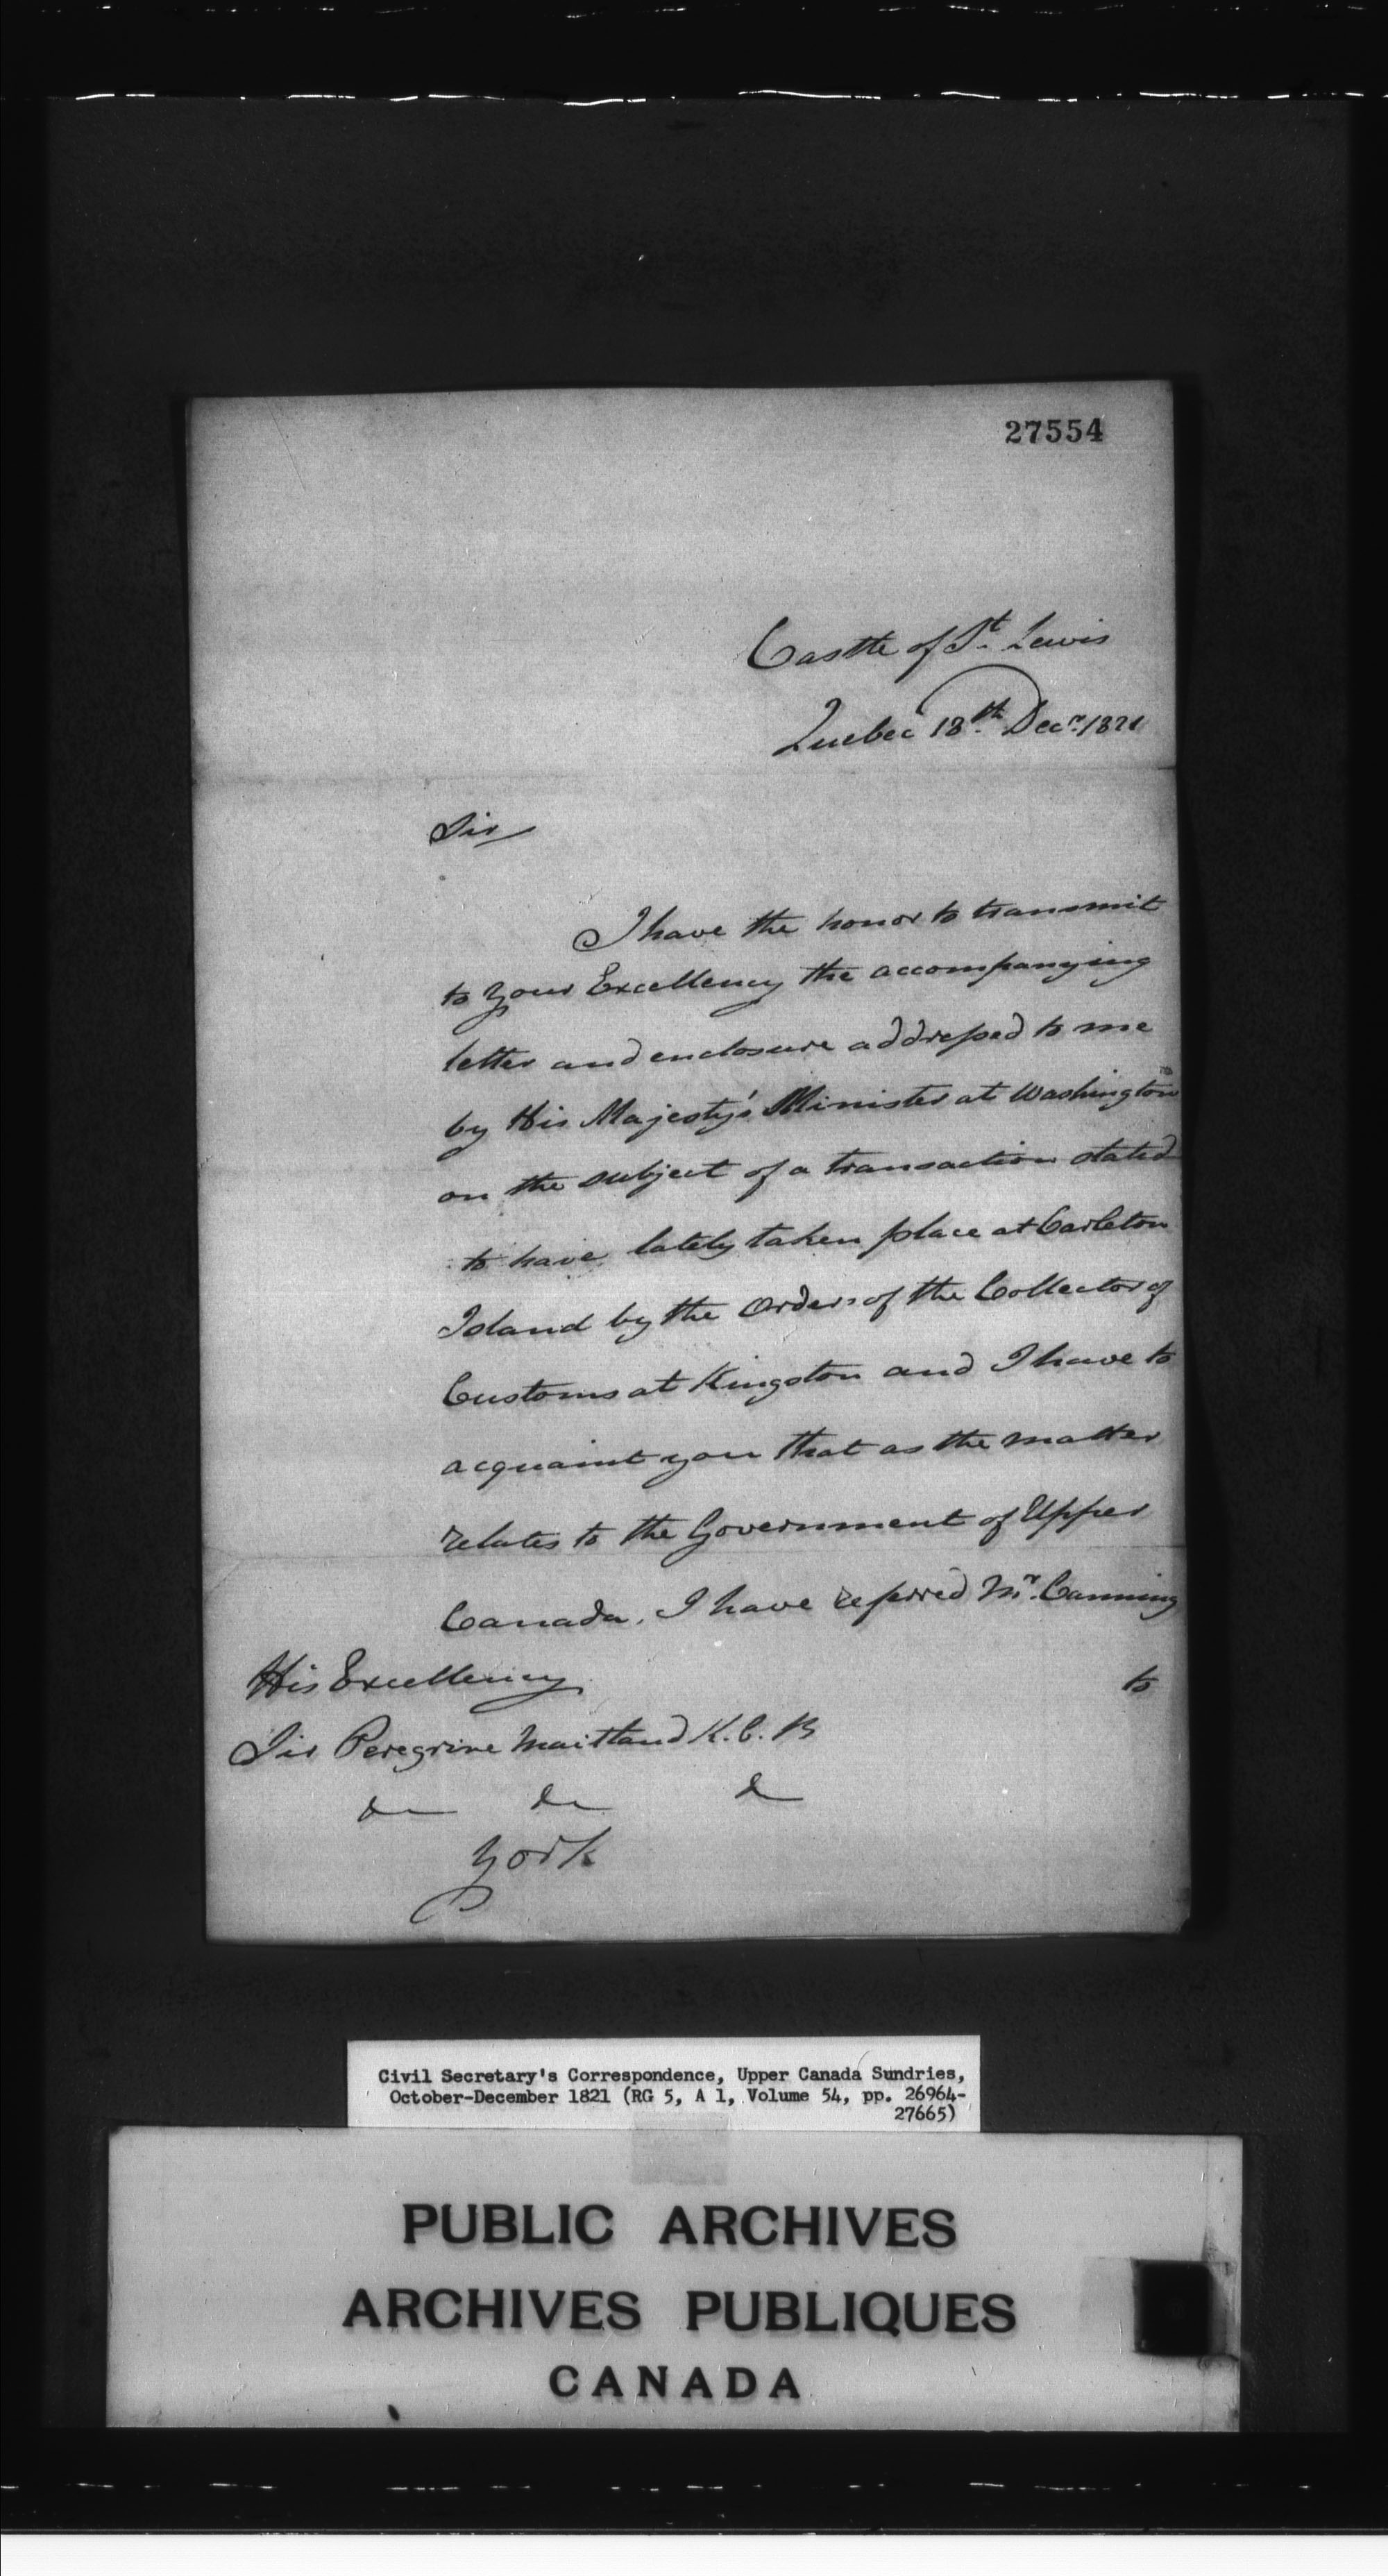 27554
Castle of St. Lewis
Quebec 18th. Decr. 1821
Sir
I have the honor to transmit
to Your Excellency the accompanying
letter and enclosure addressed to me
by His Majesty's Minister at Washington
on the subject of a transaction stated
to have lately taken place at Carleton
Island by the Orders of the Collector of
Customs at Kingston and I have to
acquaint you that as the matter
relates to the Government of Upper
Canada, I have referred Mr. Canning
to
His Excellency
Sir Peregrine Maitland K. C. B
&c &c &c
York
Civil Secretary's Correspondence, Upper Canada Sundries,
October-December 1821 (RG 5, A 1, Volume 54, pp. 26964-
27665)
PUBLIC ARCHIVES
ARCHIVES PUBLIQUES
CANADA